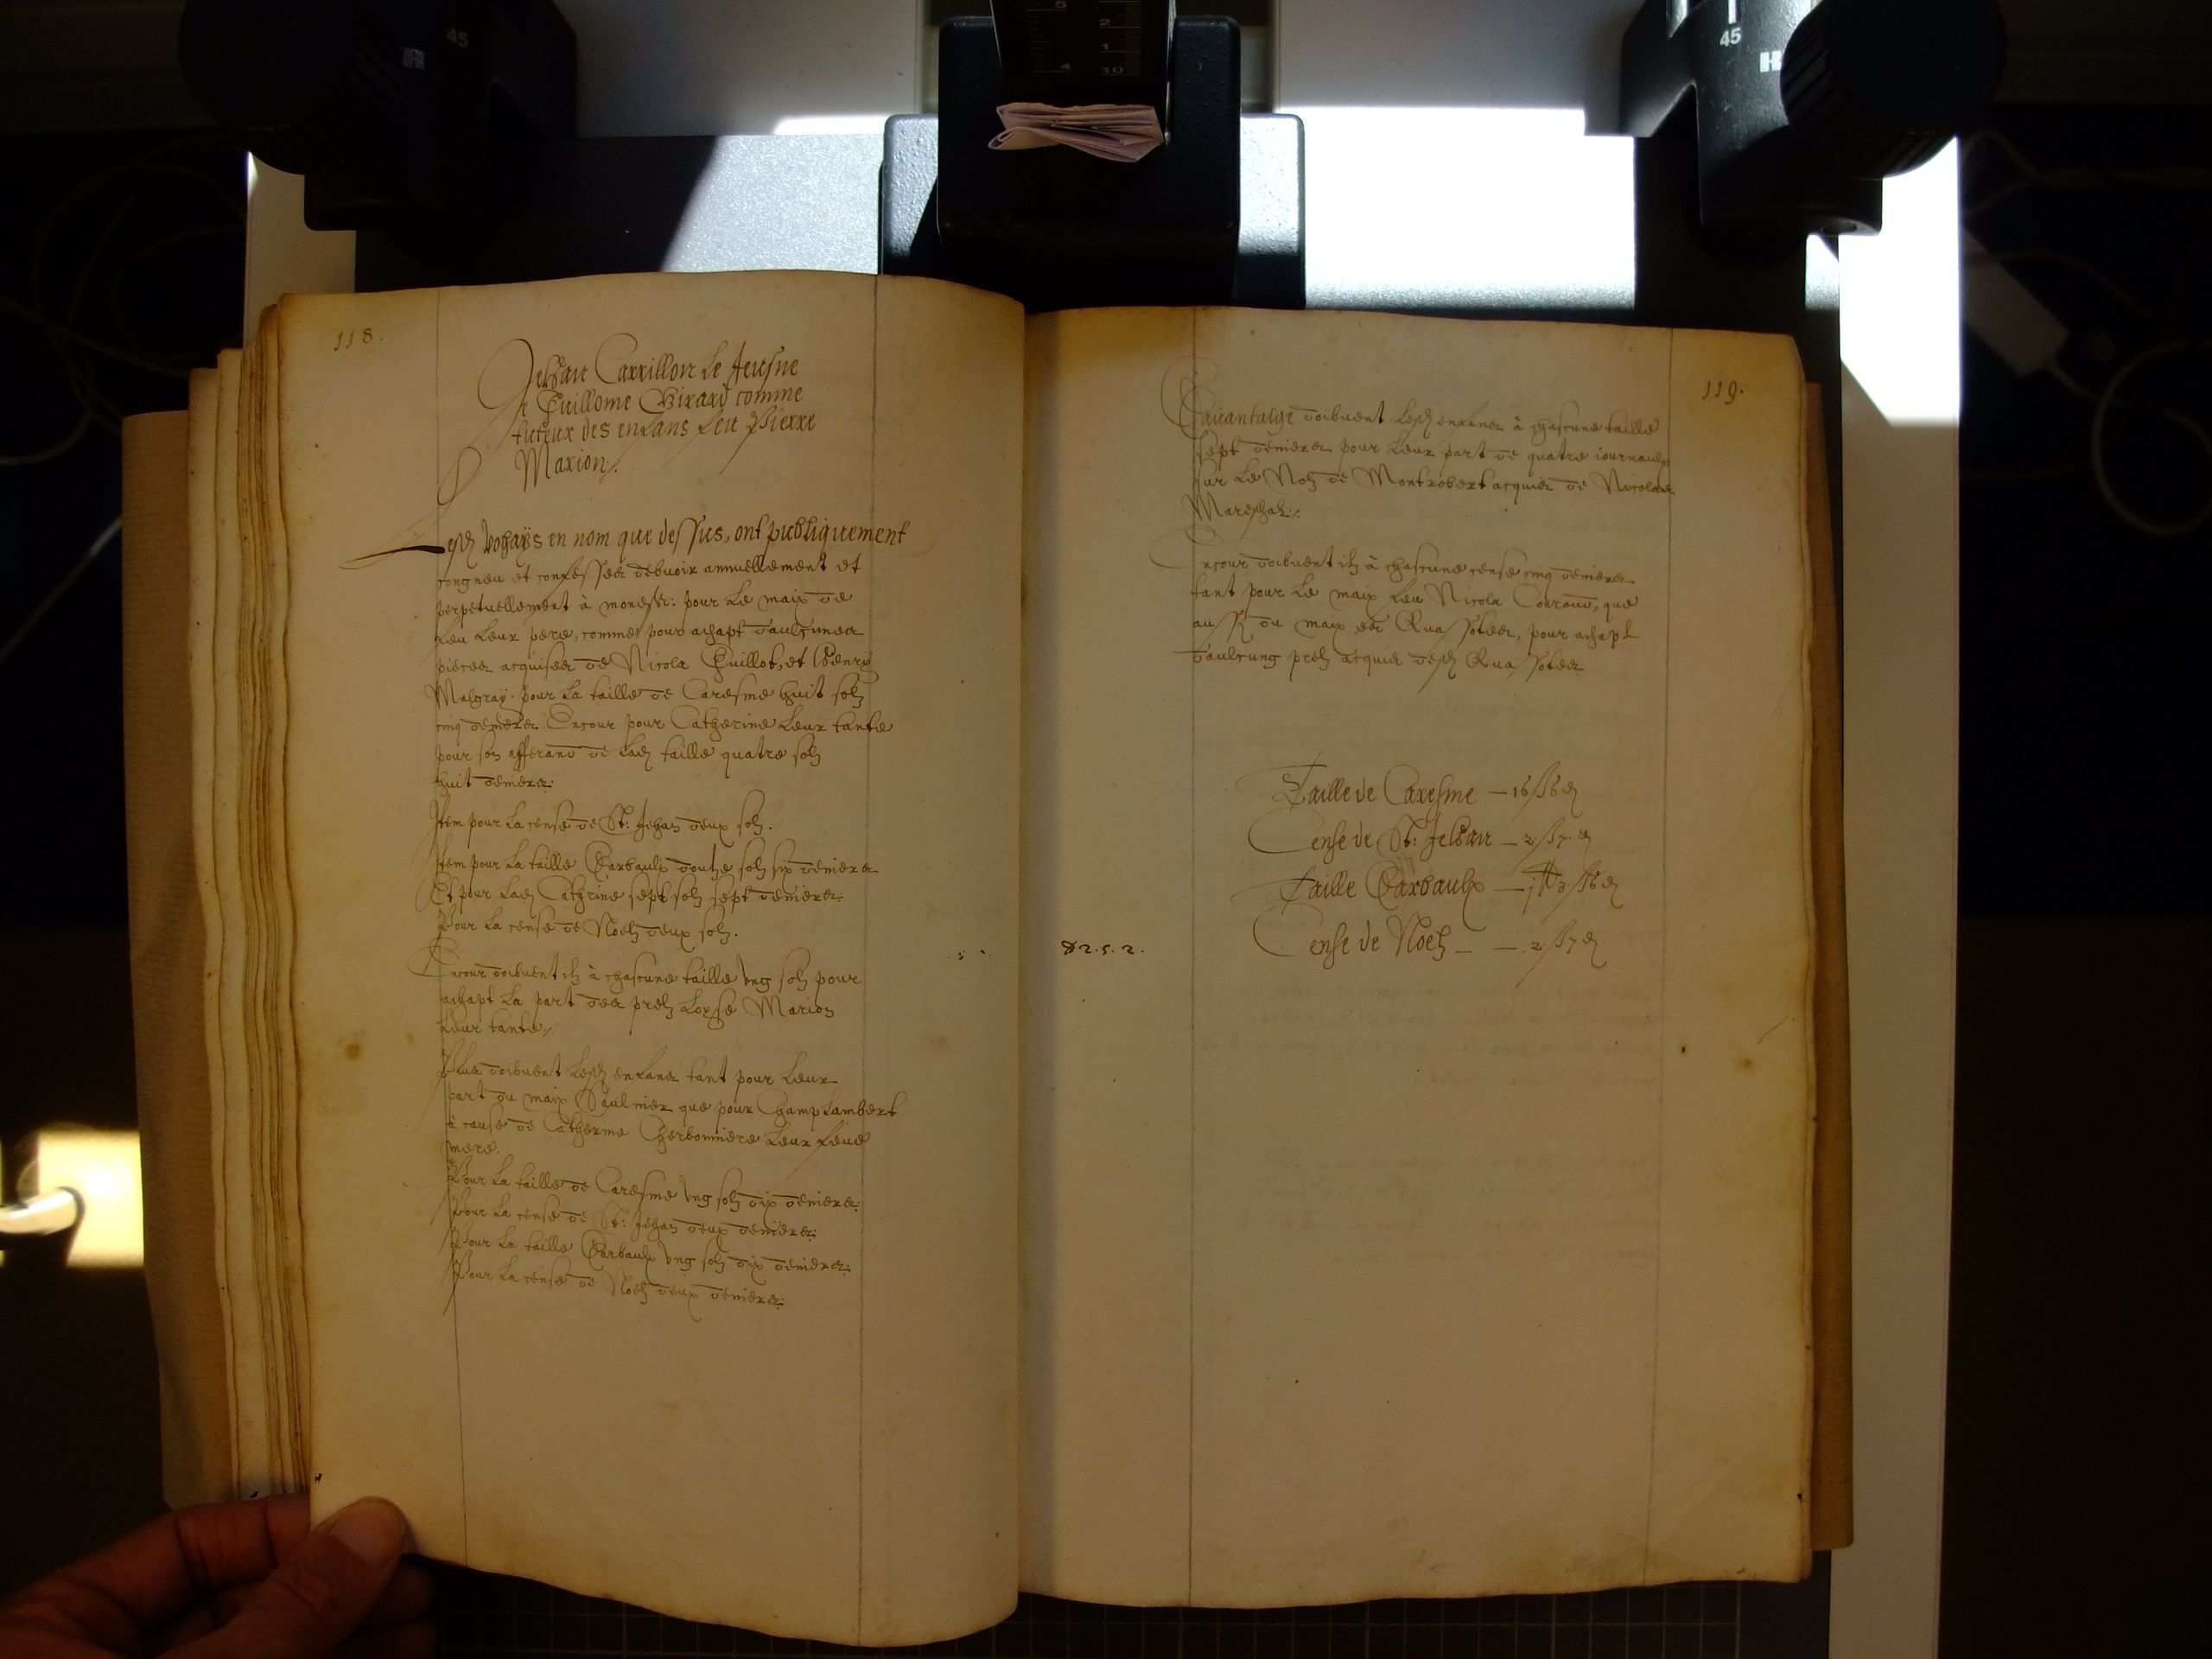 118.
Jehan Carrillon le Jeusne
et Guillome Girard comme
tuteur des enfans feu Pierre
Marion.
Lesd vohays en nom que dessus, ont publiquement
congneu et confesser debuoir annuellement et
perpetuellement à monessr: pour le maix de
feu leur pere, comme pour achapt daulcunes
pieces acquises de Nicola Guillot, et Henry
Malgray. pour la taille de Caresme huit solz
cinq deniers. Encour pour Catherine leur tante
pour son afferand de lad taille quatre solz
huit deniers:
Item pour la cense de St: Jehan deux solz.
Item pour la taille Garbaulx douze solz six deniers
Et pour lad Cathrine sept solz sept deniers:
Pour la cense de Noelz deux solz.
Encour doibuent ilz à chascune taille ung solz pour
achapt la part des prelz Loyse Marion
leur tante.
Plus doibuent lesd enfans tant pour leur
part du maix Saulnier que pour Champ Lambert
à cause de Catherine Cherbonniere leur feue
mere.
Pour la taille de Caresme ung solz dix deniers:
Pour la cense de St: Jehan deux deniers:
Pour la taille Garbaulx ung solz dix deniers:
Pour la cense de Noelz deux deniers:
119.
Dauantaige doibuent lesd enfans à chascune taille
sept deniers pour leur part de quatre iournaulx
sur le Noz de Montrobert acquis de Nicolas
Mareschal:
Encour doibuent ilz à chascune cense cinq deniers
tant pour le maix feu Nicola Conraud, que
aussy du maix des Quassotes, pour achapt
daulcung prelz acquis desd Quassotes
Taille de Caresme — 16 ß 6 d
Cense de St: Jehan — 2 ß 7 d
Taille Garbaulx — j # 3 ß 6 d
2.5.2.
Cense de Noelz — 2 ß 7 d
45
H
45
H